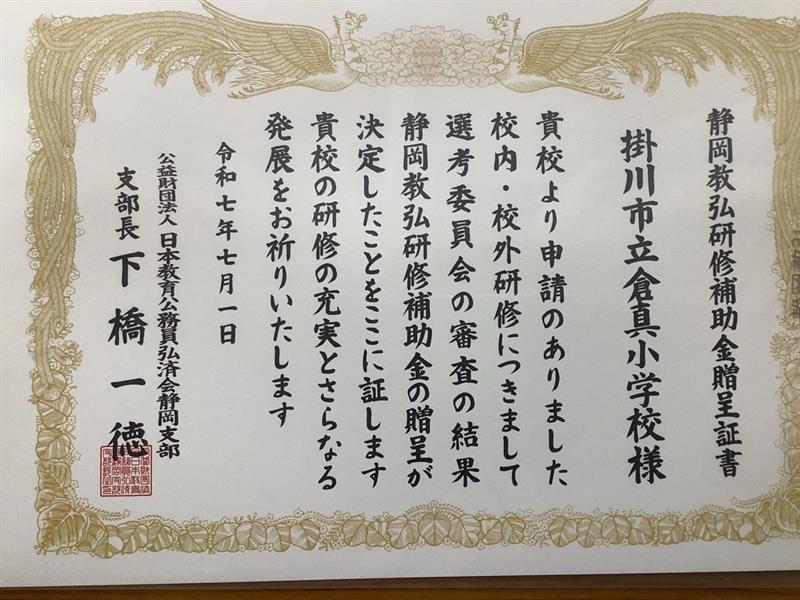 静岡教弘研修補助金贈呈証書
掛川市立倉真小学校様
貴校より申請のありました
校内・校外研修につきまして
選考委員会の審査の結果
静岡教弘研修補助金の贈呈が
決定したことをここに証します
貴校の研修の充実とさらなる
発展をお祈りいたします
令和七年七月一日
公益財団法人 日本教育公務員弘済会静岡支部
支部長 下橋一徳